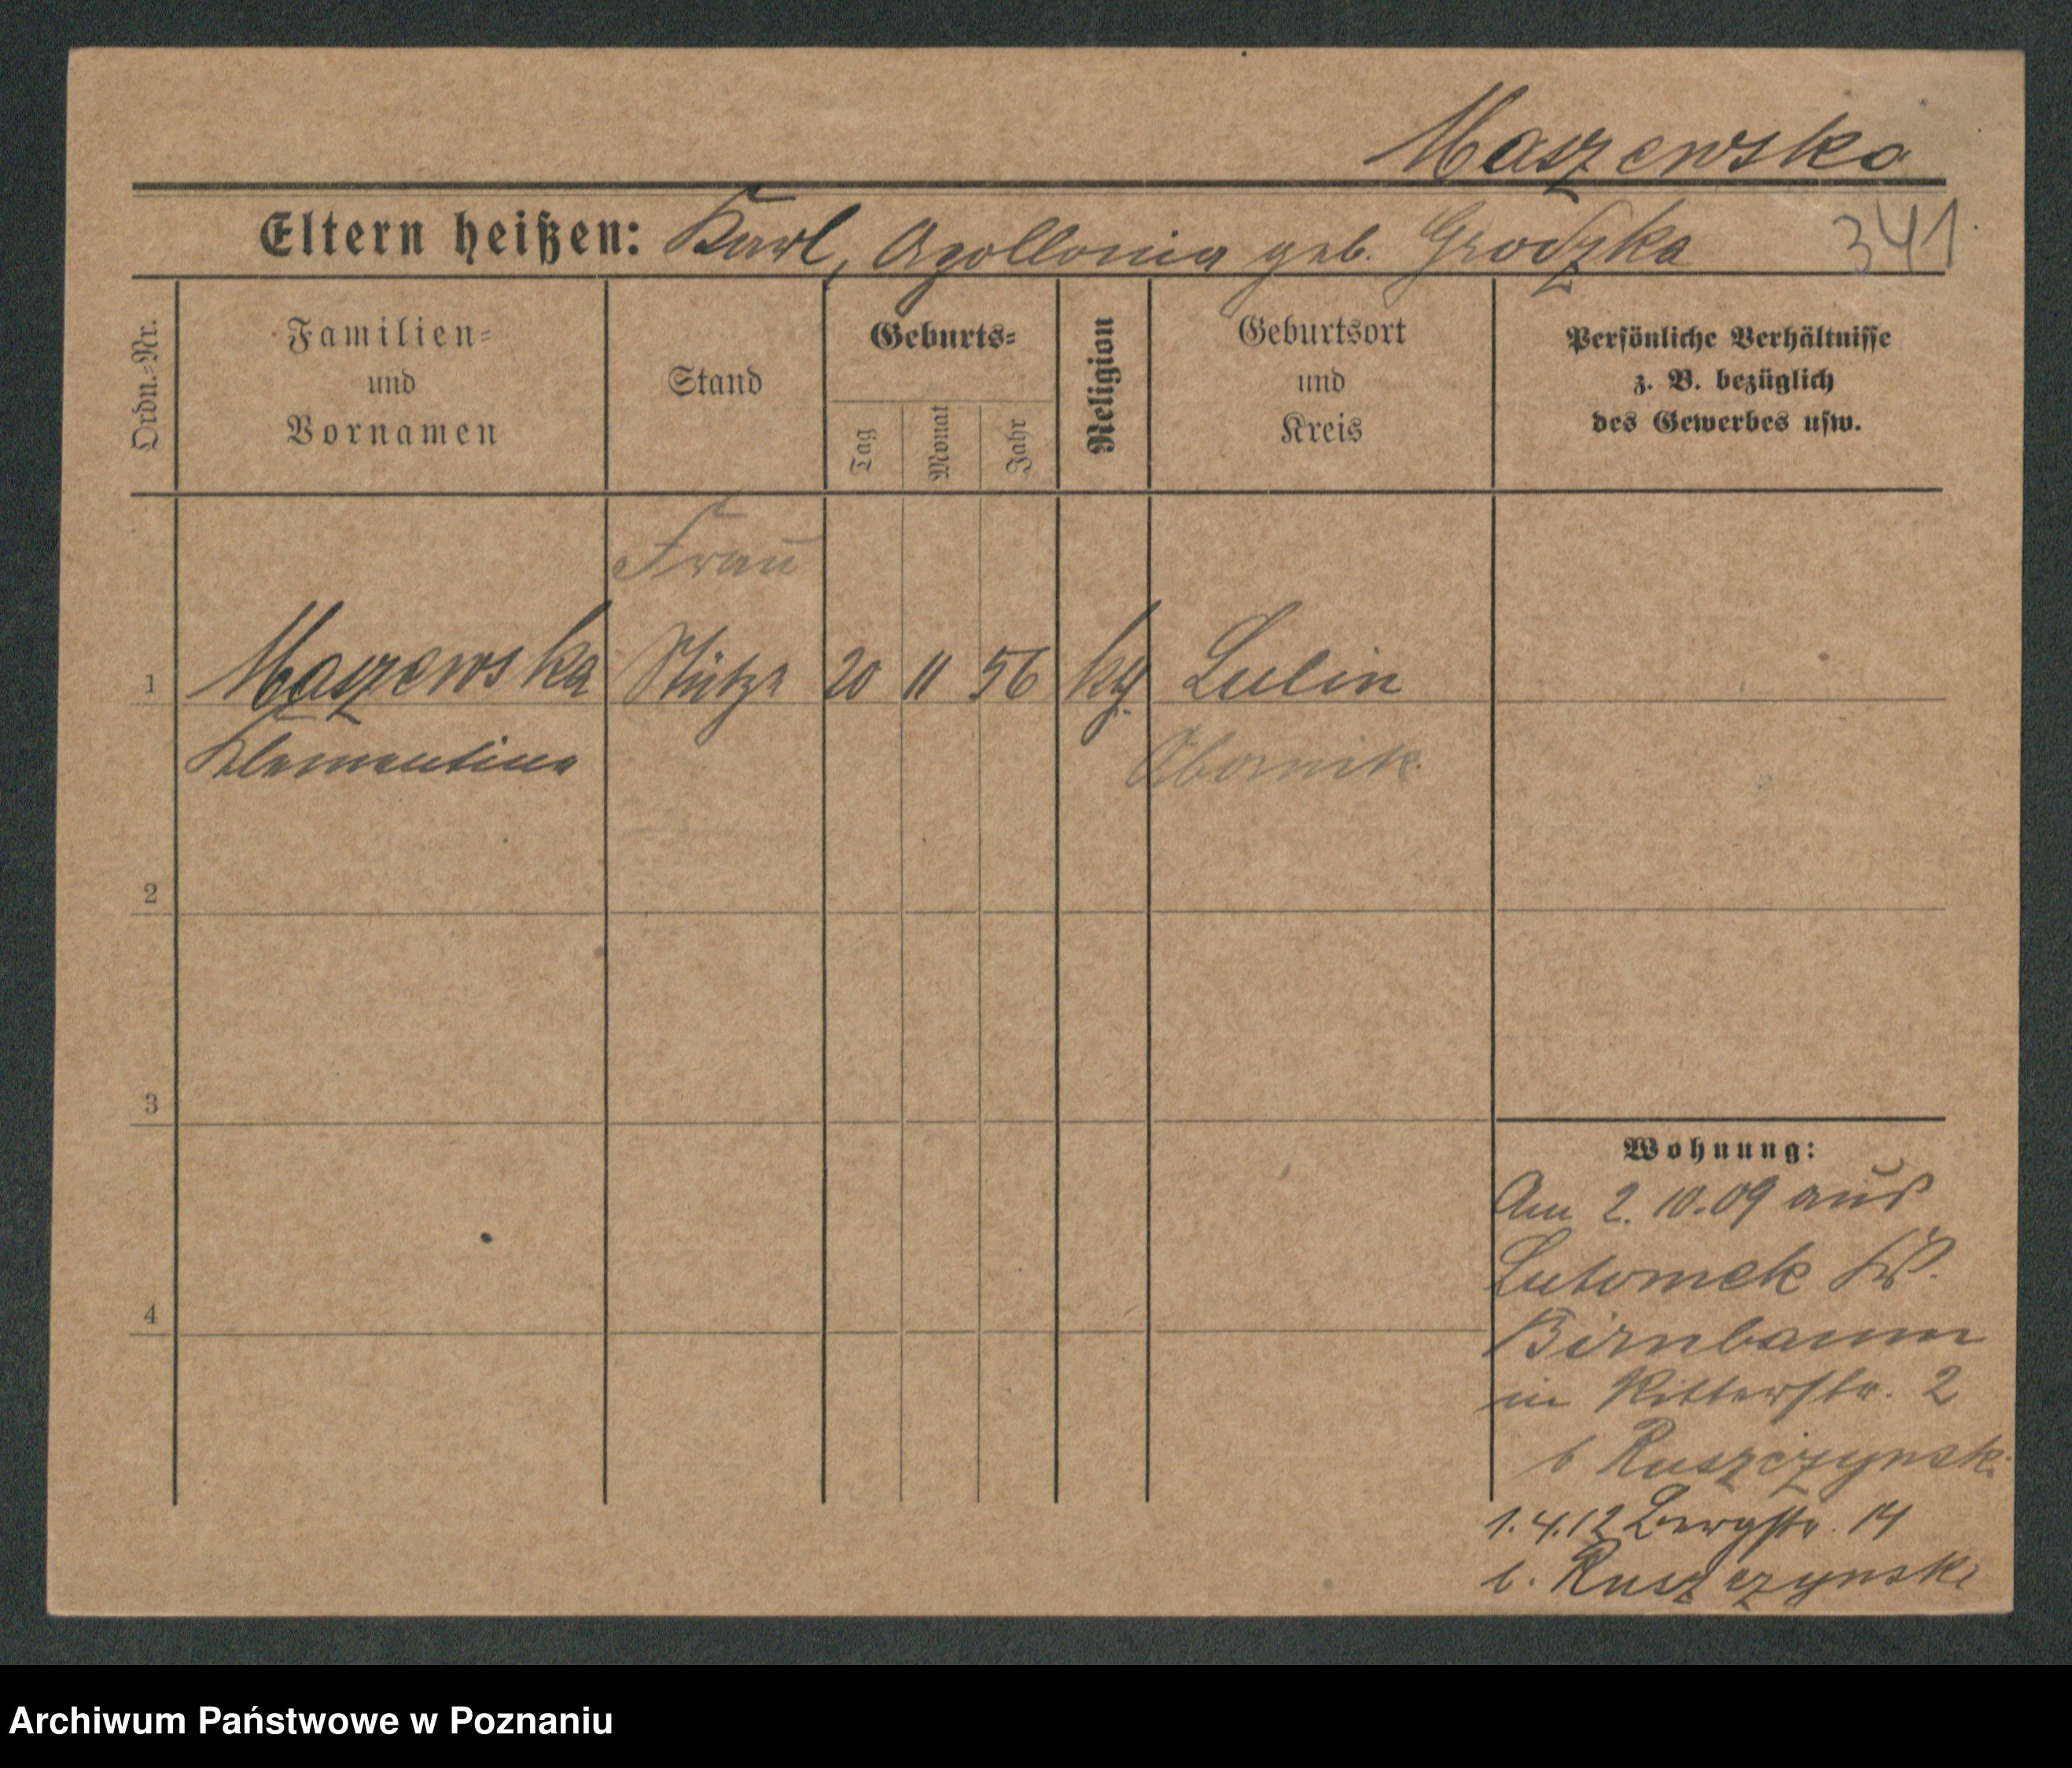 Maszewska
Eltern heißen: Karl, Apollonia geb. Grodzka
341
Ordn.-Nr.
Familien-
und
Vornamen
Stand
Geburts-
Tag
Monat
Jahr
Religion
Geburtsort
und
Kreis
Persönliche Verhältnisse
z. B. bezüglich
des Gewerbes usw.
Frau
1 Maszewska Stütze 20 11 56 kth. Lulin
Klementina Obornik
2
3
4
Wohnung:
Am 2.10.09 aus
Lutomek Kr.
Birnbaum
in Ritterstr. 2
b Ruszczynski
1.4.12 Bergstr. 14
b. Ruszczynski
Archiwum Państwowe w Poznaniu